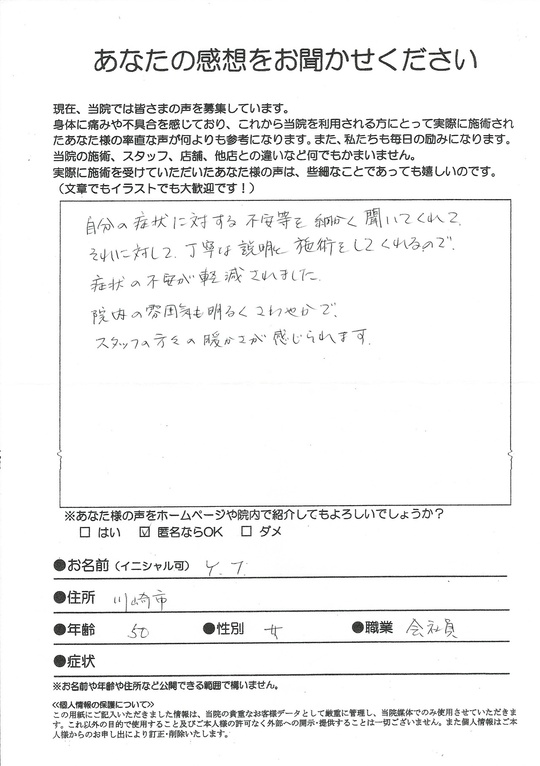 あなたの感想をお聞かせください
現在、当院では皆さまの声を募集しています。
身体に痛みや不具合を感じており、これから当院を利用される方にとって実際に施術され
たあなた様の率直な声が何よりも参考になります。また、私たちも毎日の励みになります。
当院の施術、スタッフ、店舗、他店との違いなど何でもかまいません。
実際に施術を受けていただいたあなた様の声は、些細なことであっても嬉しいのです。
(文章でもイラストでも大歓迎です!)
自分の症状に対する不安等を細かく聞いてくれて、
それに対して、丁寧な説明と施術をしてくれるので、
症状の不安が軽減されました。
院内の雰囲気も明るくさわやかで、
スタッフの方々の暖かさが感じられます。
※あなた様の声をホームページや院内で紹介してもよろしいでしょうか?
□ はい ☑ 匿名ならOK □ ダメ
●お名前(イニシャル可) Y.T.
●住所 川崎市
●年齢 50 ●性別 女 ●職業 会社員
●症状
※お名前や年齢や住所など公開できる範囲で構いません。
≪個人情報の保護について≫
この用紙にご記入いただきました情報は、当院の貴重なお客様データとして厳重に管理し、当院媒体でのみ使用させていただきま
す。これ以外の目的で使用すること及びご本人様の許可なく外部への開示・提供することは一切ございません。また個人情報はご本
人様からのお申し出により訂正・削除いたします。